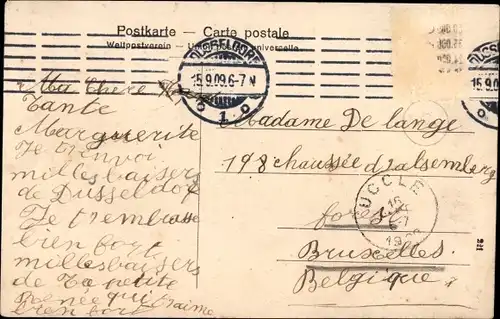 Postkarte – Carte postale
Weltpostverein – Union postale universelle
DÜSSELDORF
15.9.09.6-7N
1
DÜSSELDORF
15.9.09
Ma Chere
Tante
Marguerite
Je t'envoi
milles baisers
de Dusseldorf
Je t'embrasse
bien fort
milles baisers
de Ta petite
Renée qui t'aime
bien fort
Madame De lange
198 chaussée d'alsemberg
forest
Bruxelles
Belgique
UCCLE
16
1909